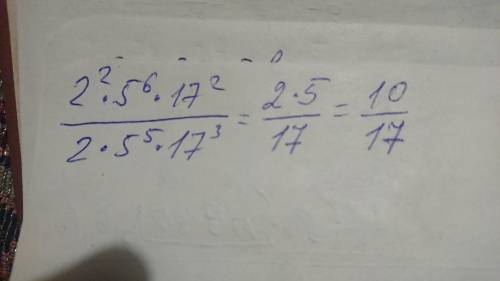 2²·5⁶·17² / 2·5⁵·17³ = 2·5 / 17 = 10 / 17